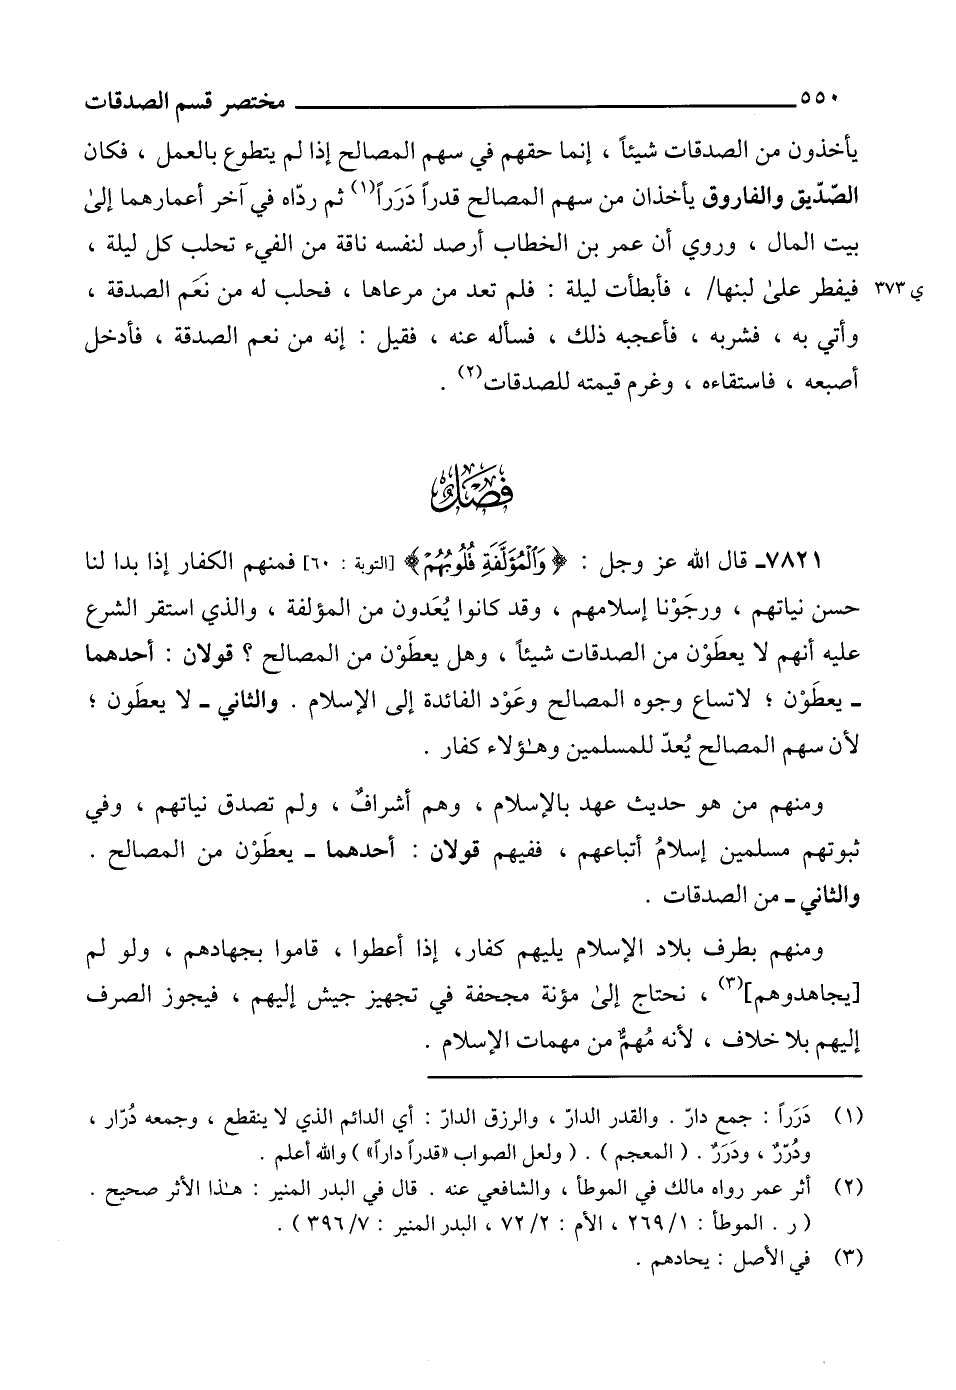 ٥٥٠ ــــــــــ مختصر قسم الصدقات
يأخذون من الصدقات شيئاً ، إنما حقهم في سهم المصالح إذا لم يتطوع بالعمل ، فكان
الصّدّيق والفاروق يأخذان من سهم المصالح قدراً دَرَراً(١) ثم ردّاه في آخر أعمارهما إلىٰ
بيت المال ، وروي أن عمر بن الخطاب أرصد لنفسه ناقة من الفيء تحلب كل ليلة ،
فيفطر علىٰ لبنها/ ، فأبطأت ليلة : فلم تعد من مرعاها ، فحلب له من نَعَم الصدقة ، ي ٣٧٣
وأتي به ، فشربه ، فأعجبه ذلك ، فسأله عنه ، فقيل : إنه من نعم الصدقة ، فأدخل
أصبعه ، فاستقاءه ، وغرم قيمته للصدقات(٢) .
فصل
٧٨٢١ـ قال الله عز وجل : ﴿وَٱلْمُؤَلَّفَةِ قُلُوبُهُمْ﴾ [التوبة : ٦٠] فمنهم الكفار إذا بدا لنا
حسن نياتهم ، ورجَوْنا إسلامهم ، وقد كانوا يُعَدون من المؤلفة ، والذي استقر الشرع
عليه أنهم لا يعطَوْن من الصدقات شيئاً ، وهل يعطَوْن من المصالح ؟ قولان : أحدهما
ـ يعطَوْن ؛ لاتساع وجوه المصالح وعَوْد الفائدة إلى الإسلام . والثاني ـ لا يعطَون ؛
لأن سهم المصالح يُعدّ للمسلمين وهـٰؤلاء كفار .
ومنهم من هو حديث عهد بالإسلام ، وهم أشرافٌ ، ولم تصدق نياتهم ، وفي
ثبوتهم مسلمين إسلامُ أتباعهم ، ففيهم قولان : أحدهما ـ يعطَوْن من المصالح .
والثاني ـ من الصدقات .
ومنهم بطرف بلاد الإسلام يليهم كفار، إذا أعطوا ، قاموا بجهادهم ، ولو لم
[يجاهدوهم](٣) ، نحتاج إلىٰ مؤنة مجحفة في تجهيز جيش إليهم ، فيجوز الصرف
إليهم بلا خلاف ، لأنه مُهمٌّ من مهمات الإسلام .
(١) دَرَراً : جمع دارّ . والقدر الدارّ ، والرزق الدارّ : أي الدائم الذي لا ينقطع ، وجمعه دُرّار ،
ودُرّرٌ ، ودَرَرٌ . ( المعجم ) . ( ولعل الصواب «قدراً داراً» ) والله أعلم .
(٢) أثر عمر رواه مالك في الموطأ ، والشافعي عنه . قال في البدر المنير : هـٰذا الأثر صحيح .
( ر . الموطأ : ١/ ٢٦٩ ، الأم : ٢/ ٧٢ ، البدر المنير : ٧/ ٣٩٦ ) .
(٣) في الأصل : يحادهم .